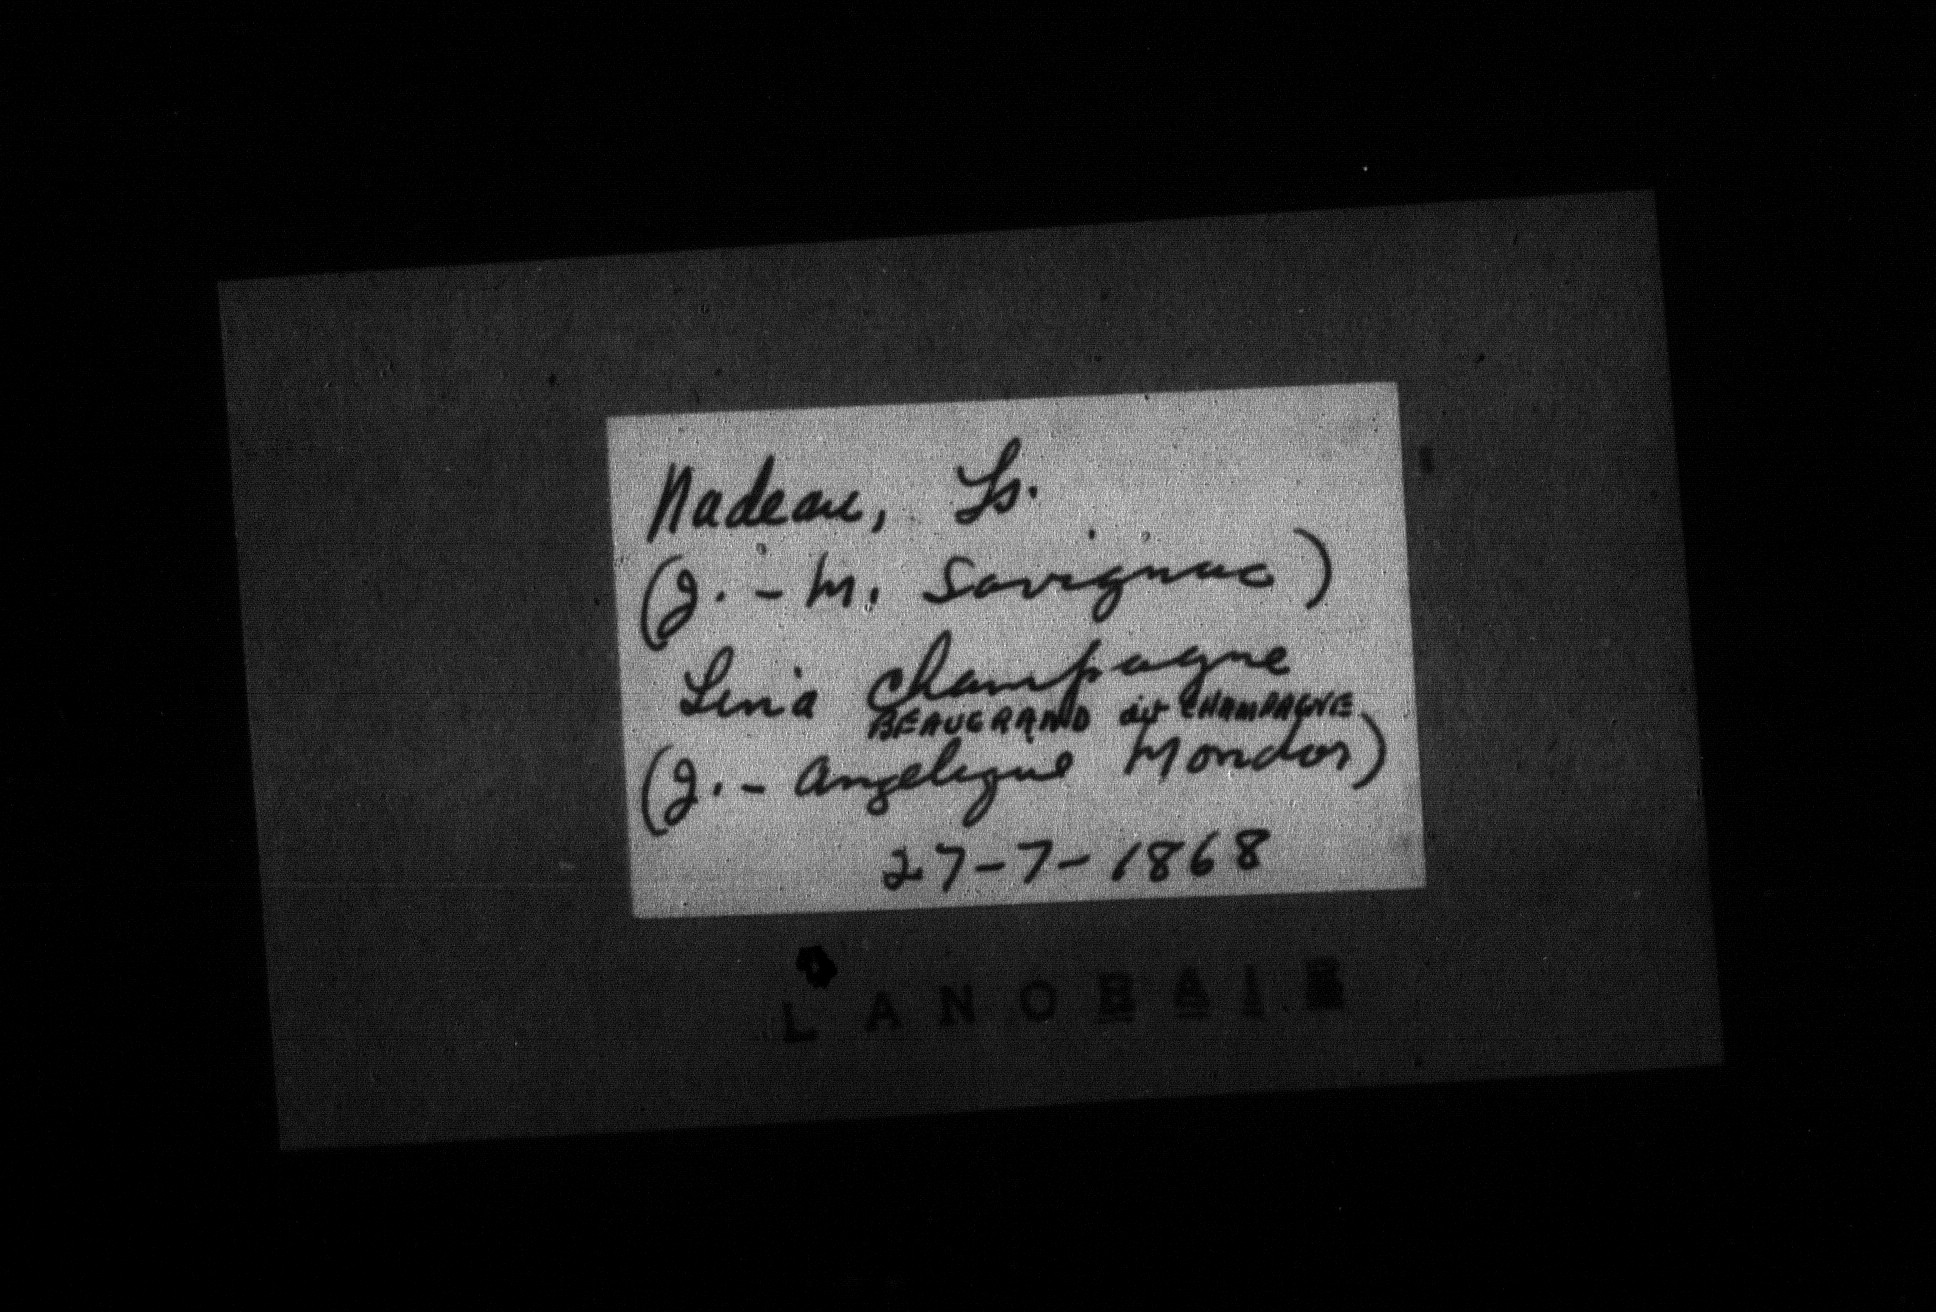 Nadeau, Ls.
(J. - M. Savignac)
Lina Champagne
BEAUGRAND dit CHAMPAGNE
(J. - Angelique Mondor)
27-7-1868
LANORAIE